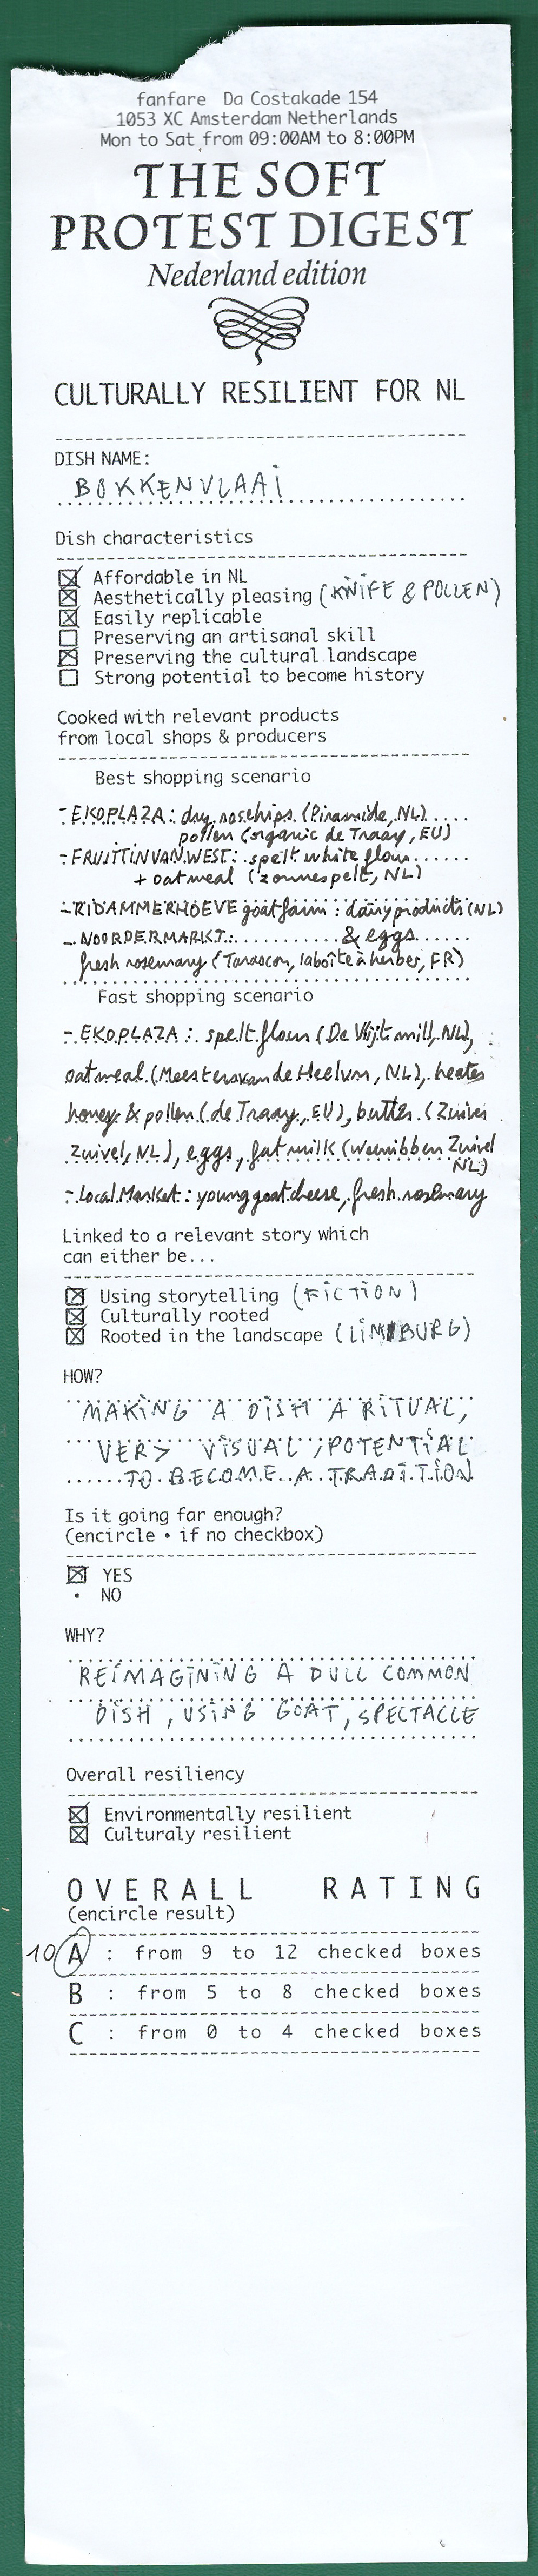 fanfare Da Costakade 154
1053 XC Amsterdam Netherlands
Mon to Sat from 09:00AM to 8:00PM
THE SOFT
PROTEST DIGEST
Nederland edition
CULTURALLY RESILIENT FOR NL
DISH NAME:
BOKKENVLAAI
Dish characteristics
☒ Affordable in NL
☒ Aesthetically pleasing (KNIFE & POLLEN)
☒ Easily replicable
☐ Preserving an artisanal skill
☒ Preserving the cultural landscape
☐ Strong potential to become history
Cooked with relevant products
from local shops & producers
Best shopping scenario
- EKOPLAZA: dry rosehips (Piramide, NL)
pollen (organic de Traay, EU)
- FRUITTINVANWEST: spelt white flour
+ oatmeal (zonnespelt, NL)
- RIDAMMERHOEVE goat farm: dairy products (NL)
- NOORDERMARKT: & eggs
fresh rosemary (Tarascon, laboîte à herbes, FR)
Fast shopping scenario
- EKOPLAZA: spelt flour (De Vlijt mill, NL),
oatmeal (Meestersvande Heelum, NL),
honey & pollen (de Traay, EU), butter (Zuiver
Zuivel, NL), eggs, fat milk (Weerribben Zuivel
NL)
- Local Market: young goat cheese, fresh rosemary
Linked to a relevant story which
can either be...
☒ Using storytelling (FICTION)
☒ Culturally rooted
☒ Rooted in the landscape (LIMBURG)
HOW?
MAKING A DISH A RITUAL,
VERY VISUAL, POTENTIAL
TO BECOME A TRADITION
Is it going far enough?
(encircle • if no checkbox)
☒ YES
• NO
WHY?
REIMAGINING A DULL COMMON
DISH, USING GOAT, SPECTACLE
Overall resiliency
☒ Environmentally resilient
☒ Culturaly resilient
OVERALL RATING
(encircle result)
10 A : from 9 to 12 checked boxes
B : from 5 to 8 checked boxes
C : from 0 to 4 checked boxes